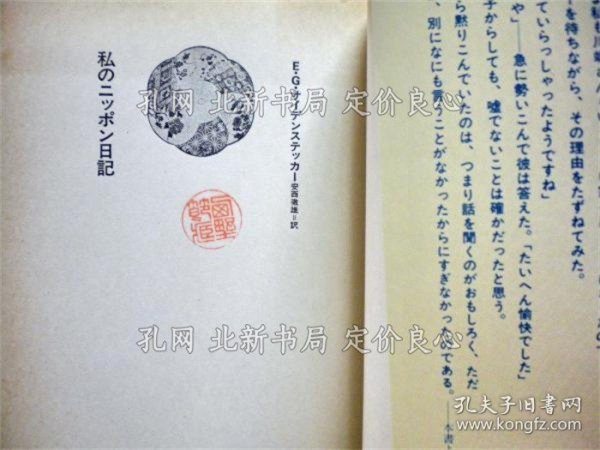 私のニッポン日記
E・G・サイデンステッカー
安西徹雄=訳
ーを待ちながら、その理由をたずねてみた。
ていらっしゃったようですね」
や」――急に勢いこんで彼は答えた。「たいへん愉快でした」
子からしても、嘘でないことは確かだったと思う。
ら黙りこんでいたのは、つまり話を聞くのがおもしろく、ただ
、別になにも言うことがなかったからにすぎなかったのである。
――本書よ
孔网 北新书局 定价良心
孔网 北新书局 定价良心
孔网 北新书局 定价良心
孔夫子旧书网
www.kongfz.com